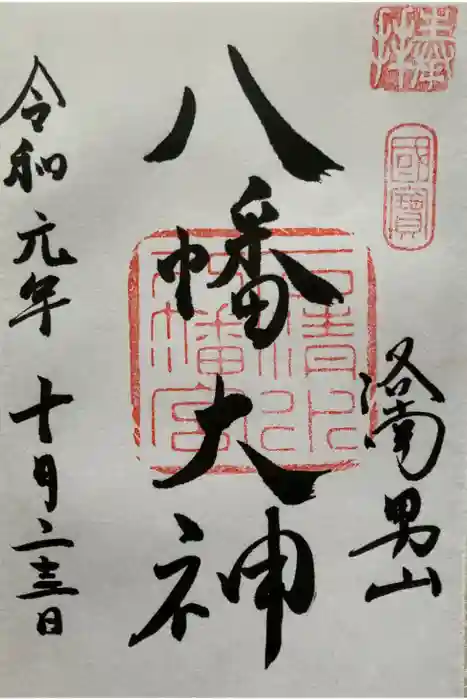 奉拝
國寶
洛南男山
八幡大神
石清水
八幡宮
令和元年十月二十三日